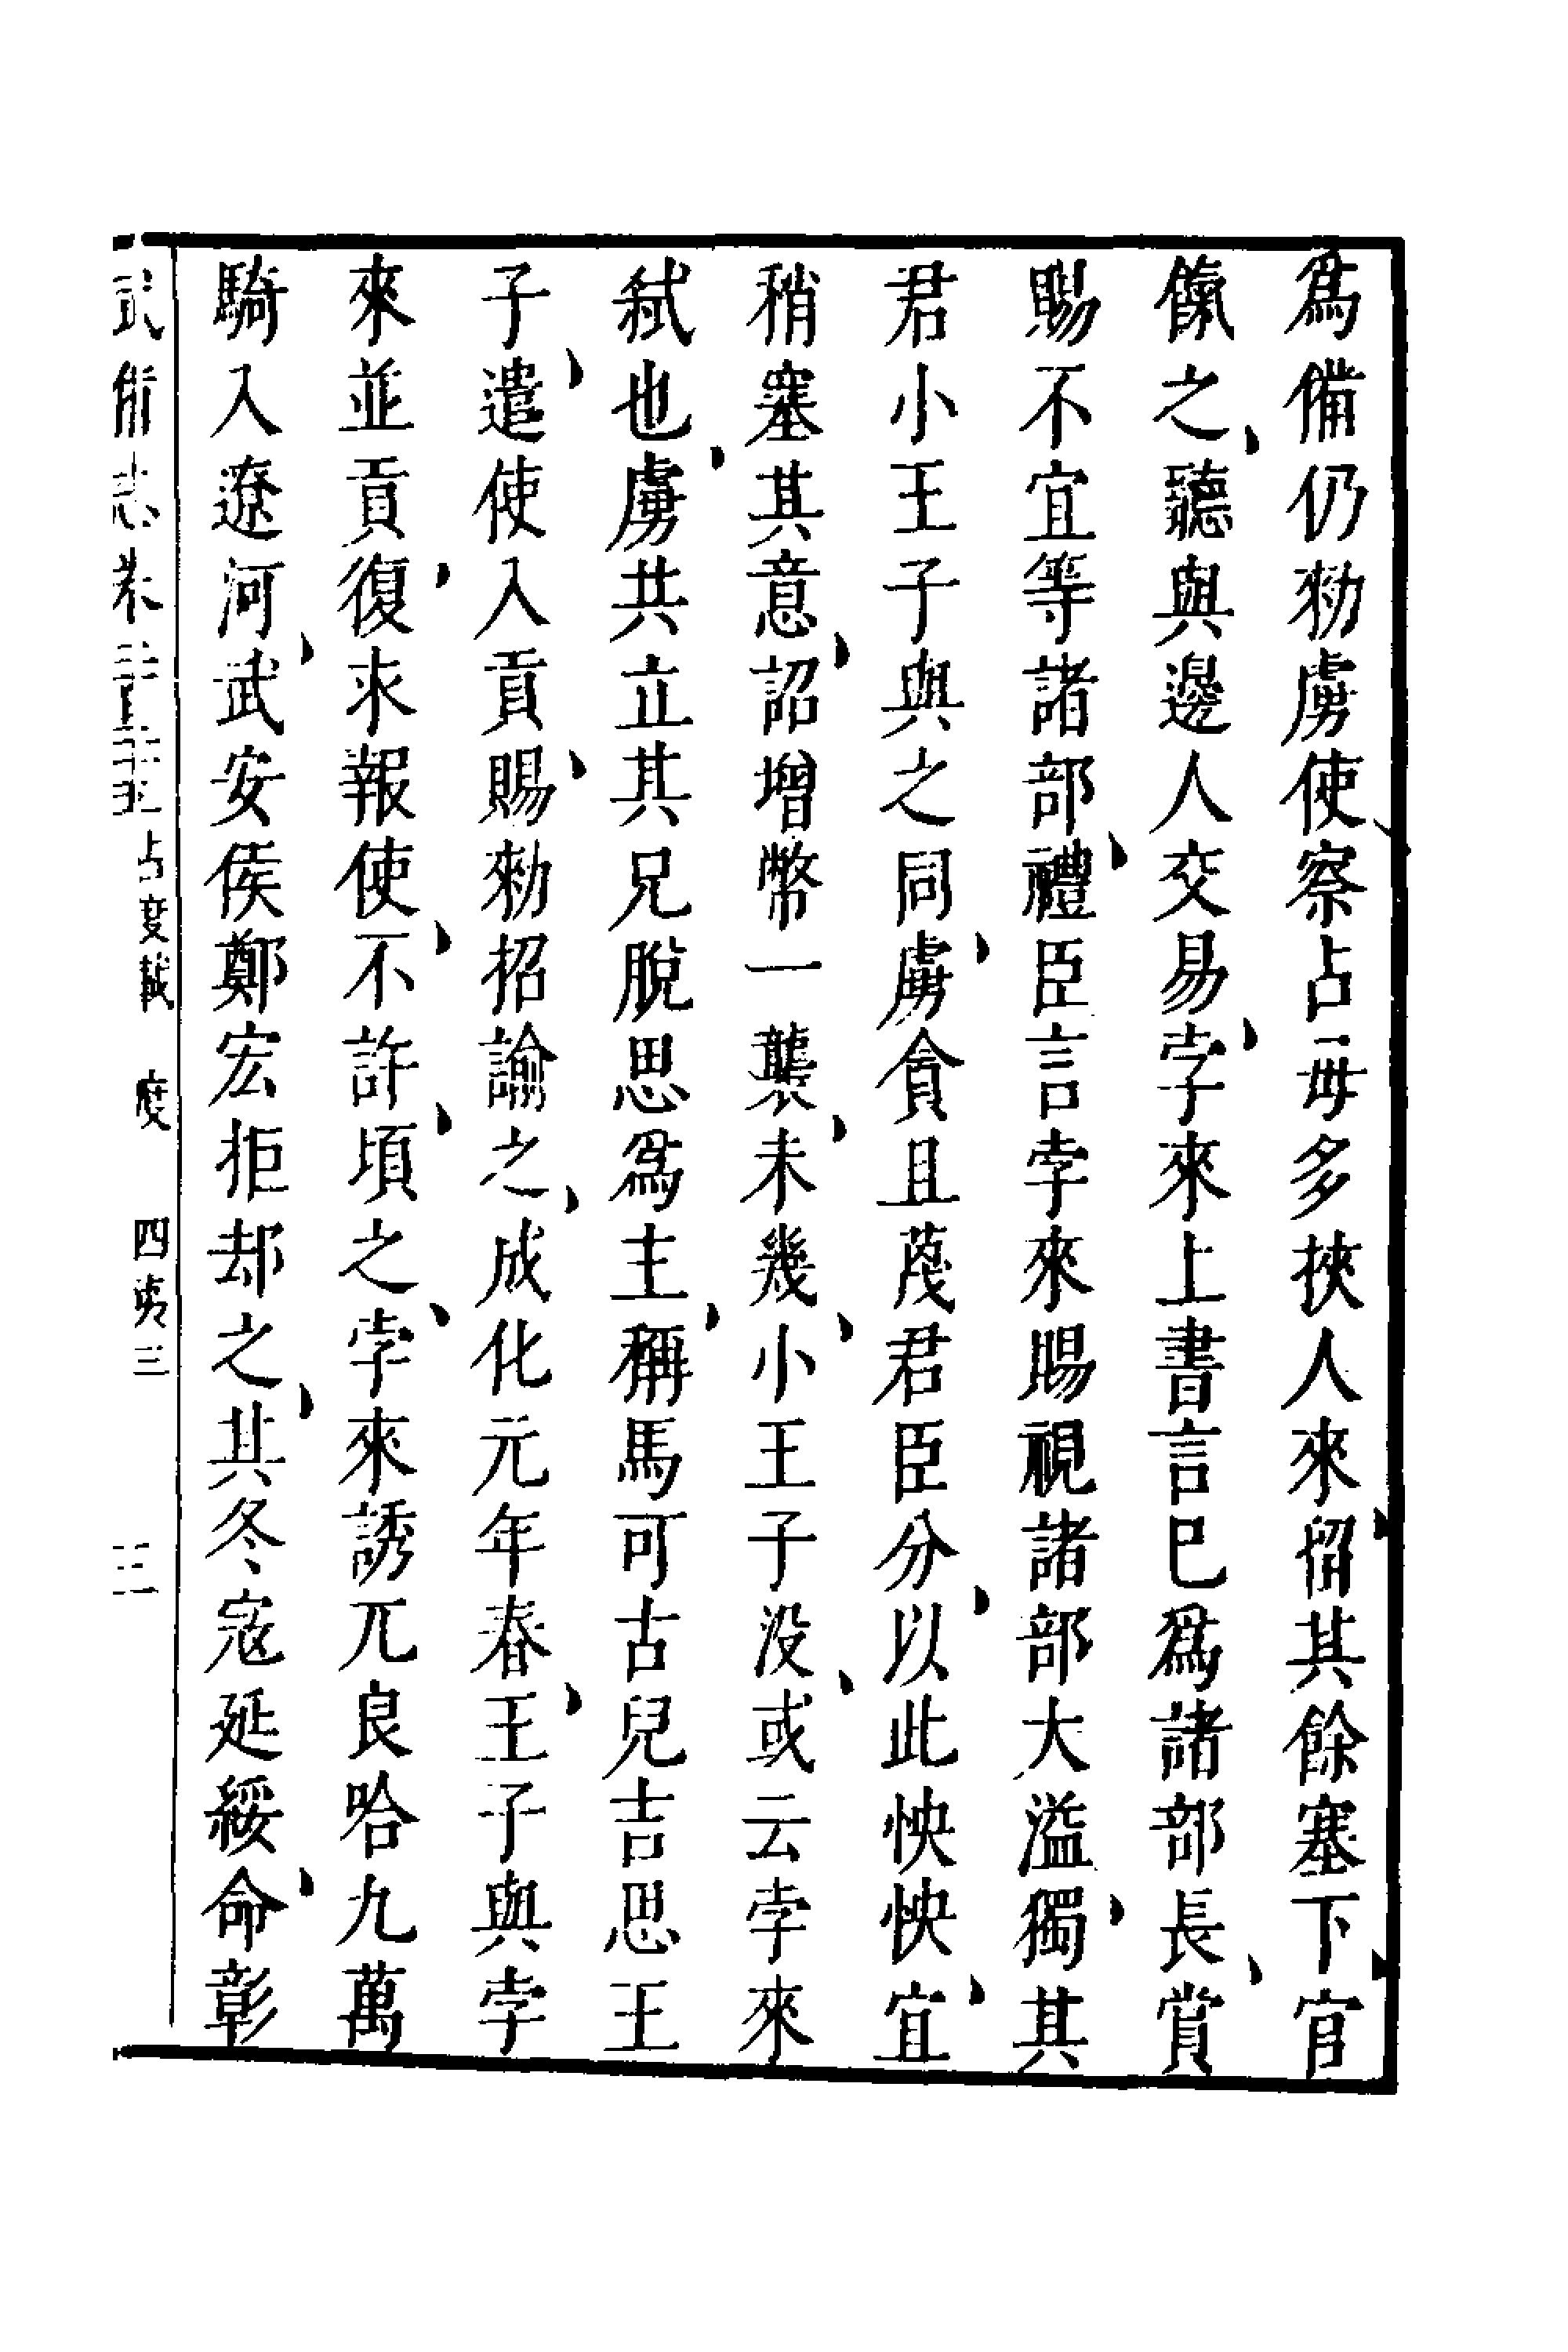 爲備仍勑虜使察占毋多挾人來留其餘塞下官
餼之聽與邊人交易孛來上書言已爲諸部長賞
賜不宜等諸部禮臣言孛來賜視諸部大溢獨其
君小王子與之同虜貪且蔑君臣分以此怏怏宜
稍塞其意詔增幣一襲未幾小王子没或云孛來
弑也虜共立其兄脫思爲主稱馬可古兒吉思王
子遣使入貢賜勑招諭之成化元年春王子與孛
來並貢復求報使不許頃之孛來誘兀良哈九萬
騎入遼河武安侯鄭宏拒却之其冬寇延綏命彰
武備志卷二百二十五 占度載 度 四夷三 三